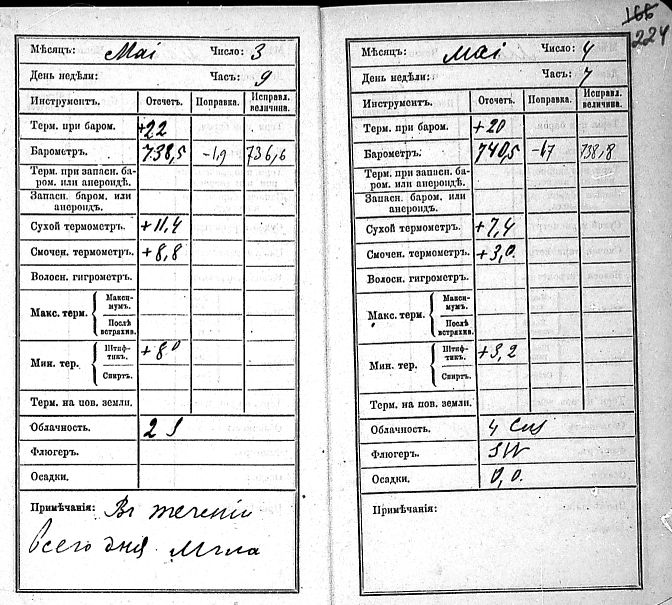 Мѣсяцъ: Mai Число: 3
День недѣли: Часъ: 9
Инструментъ. Отсчетъ. Поправка. Исправл. величина.
Терм. при баром. +22
Барометръ. 738,5 -1,9 736,6
Терм. при запасн. ба-
ром. или анероидѣ.
Запасн. баром. или
анероидъ.
Сухой термометръ. +11,4
Смочен. термометръ. +8,8
Волосн. гигрометръ.
Макс. терм. Макси-
мумъ.
Послѣ
встряхив.
Мин. тер. Штиф-
тикъ. +8,0
Спиртъ.
Терм. на пов. земли.
Облачность. 2 S
Флюгеръ.
Осадки.
Примѣчанія: Въ теченіи
всего дня мгла
166
224
Мѣсяцъ: Mai Число: 4
День недѣли: Часъ: 7
Инструментъ. Отсчетъ. Поправка. Исправл. величина.
Терм. при баром. +20
Барометръ. 740,5 -1,7 738,8
Терм. при запасн. ба-
ром. или анероидѣ.
Запасн. баром. или
анероидъ.
Сухой термометръ. +7,4
Смочен. термометръ. +3,0
Волосн. гигрометръ.
Макс. терм. Макси-
мумъ.
Послѣ
встряхив.
Мин. тер. Штиф-
тикъ. +3,2
Спиртъ.
Терм. на пов. земли.
Облачность. 4
Флюгеръ. SW
Осадки. 0,0.
Примѣчанія: